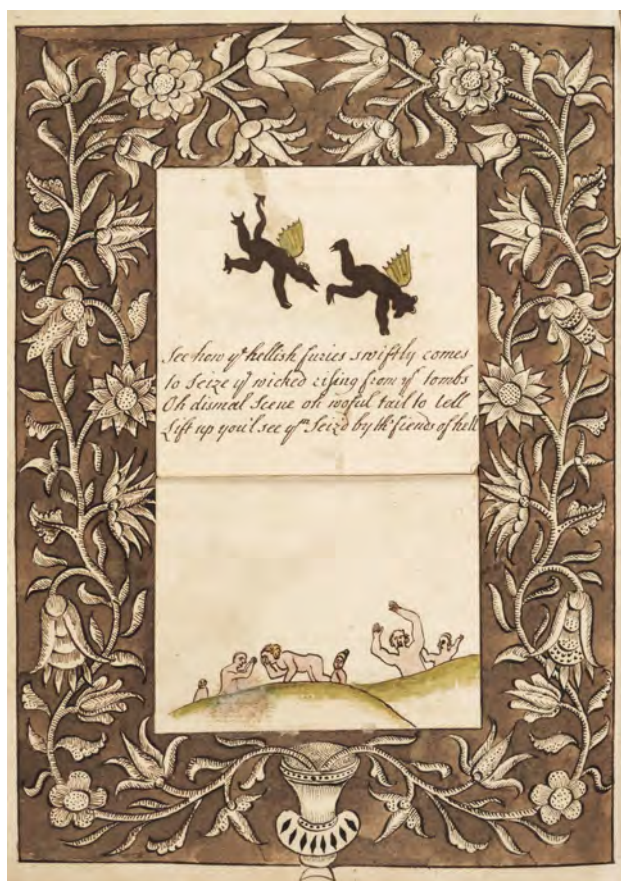 See how yᵉ hellish furies swiftly comes
to Seize yᵉ wicked rising from yᵉ tombs
Oh dismal Scene oh woful tail to tell
Lift up you'l see yᵐ Seizd by th' fiends of hell